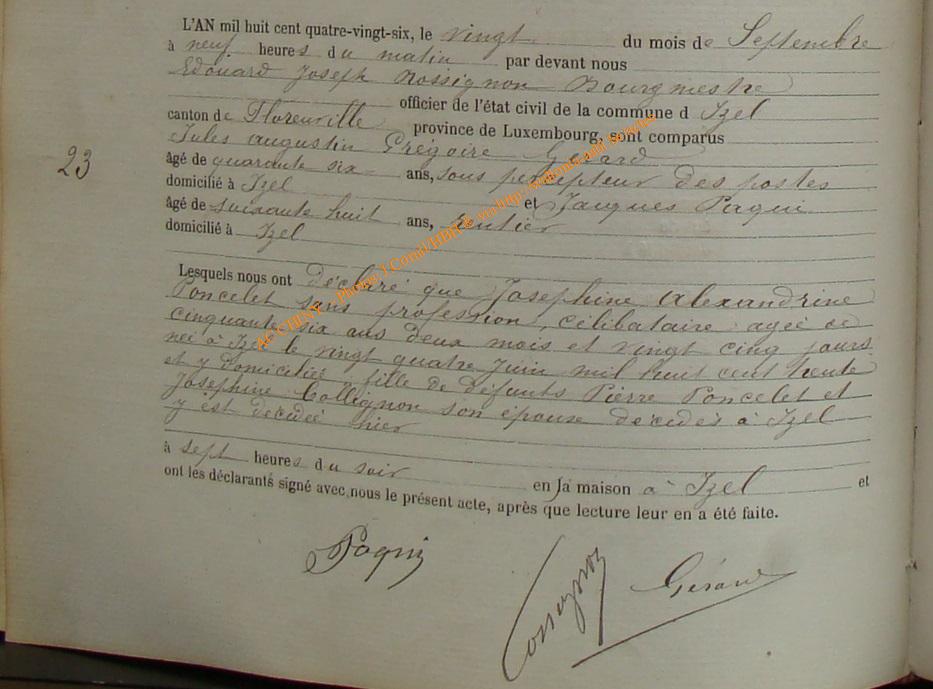 L'AN mil huit cent quatre-vingt-six, le vingt du mois de Septembre
à neuf heures du matin par devant nous
Edouard Joseph Rossignon Bourgmestre
officier de l'état civil de la commune d Izel
canton de Florenville province de Luxembourg, sont comparus
Jules augustin Grégoire Gérard
23
âgé de quarante six ans, sous percepteur des postes
domicilié à Izel et Jacques Paquin
âgé de soixante huit ans, Rentier
domicilié à Izel
Lesquels nous ont déclaré que Josephine Alexandrine
Poncelet sans profession, célibataire agée de
cinquante six ans deux mois et vingt cinq jours
née à Izel le vingt quatre Juin mil huit cent trente
et y domiciliée fille de défunts Pierre Poncelet et
Joséphine Collignon son épouse décédés à Izel
y est décédée hier
à sept heures du soir en sa maison à Izel et
ont les déclarants signé avec nous le présent acte, après que lecture leur en a été faite.
Paquin
Rossignon Gérard